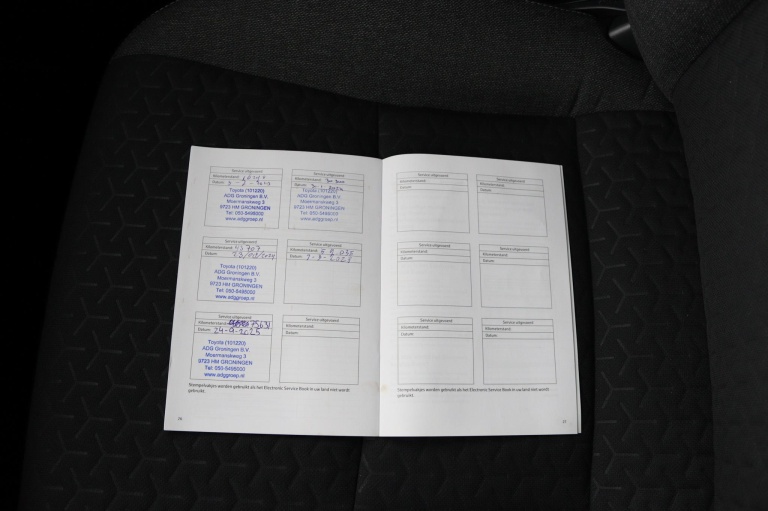 Service uitgevoerd
Kilometerstand:
Datum:
Toyota (101220)
ADG Groningen B.V.
Moermanskweg 3
9723 HM GRONINGEN
Tel: 050-5498000
www.adggroep.nl
Service uitgevoerd
Kilometerstand:
Datum:
Toyota (101220)
ADG Groningen B.V.
Moermanskweg 3
9723 HM GRONINGEN
Tel: 050-5498000
www.adggroep.nl
Service uitgevoerd
Kilometerstand:
Datum:
Toyota (101220)
ADG Groningen B.V.
Moermanskweg 3
9723 HM GRONINGEN
Tel: 050-5498000
www.adggroep.nl
Service uitgevoerd
Kilometerstand:
Datum:
Service uitgevoerd
Kilometerstand: 75631
Datum: 24-9-2025
Toyota (101220)
ADG Groningen B.V.
Moermanskweg 3
9723 HM GRONINGEN
Tel: 050-5498000
www.adggroep.nl
Service uitgevoerd
Kilometerstand:
Datum:
Stempelvakjes worden gebruikt als het Electronic Service Book in uw land niet wordt
gebruikt.
Service uitgevoerd
Kilometerstand:
Datum:
Service uitgevoerd
Kilometerstand:
Datum:
Service uitgevoerd
Kilometerstand:
Datum:
Service uitgevoerd
Kilometerstand:
Datum:
Service uitgevoerd
Kilometerstand:
Datum:
Service uitgevoerd
Kilometerstand:
Datum:
Stempelvakjes worden gebruikt als het Electronic Service Book in uw land niet wordt
gebruikt.